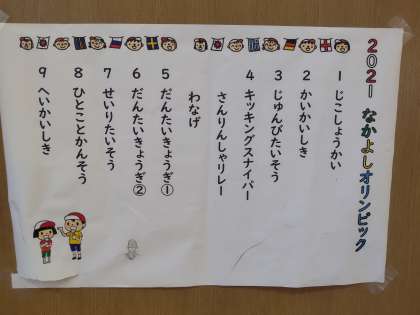 2021 なかよしオリンピック
1 じこしょうかい
2 かいかいしき
3 じゅんびたいそう
4 キッキングスナイパー
さんりんしゃリレー
わなげ
5 だんたいきょうぎ①
6 だんたいきょうぎ②
7 せいりたいそう
8 ひとことかんそう
9 へいかいしき